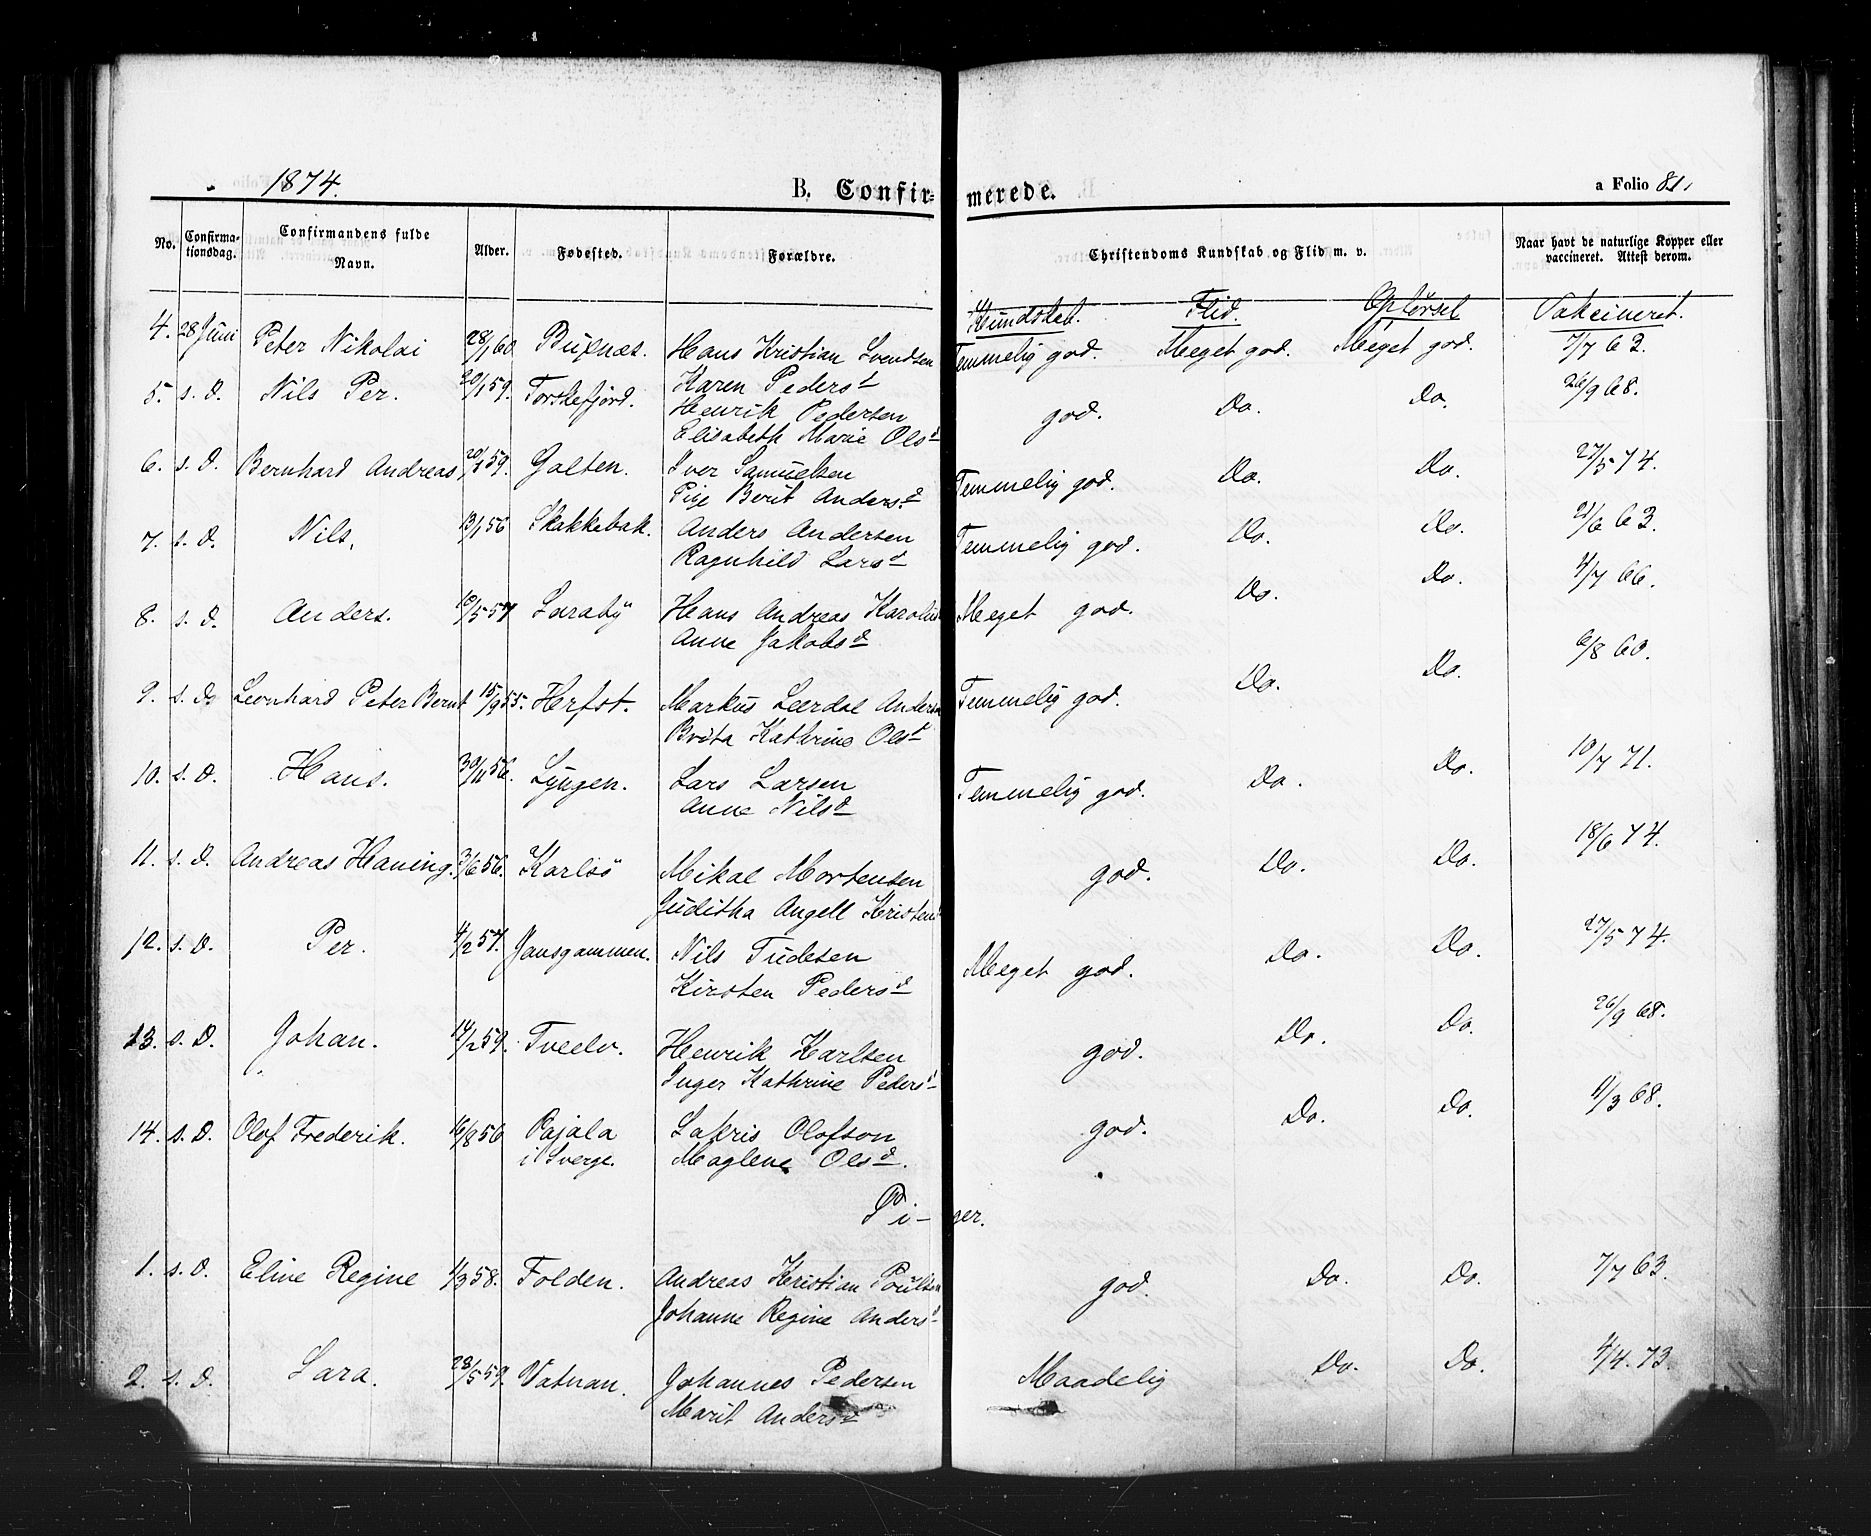 1874. B. Confirmerede. a Folio 81.
No. Confirmationsdag. Confirmandens fulde Navn. Alder. Fødested. Forældre. Christendoms Kundskab og Flid m. v. Naar havt de naturlige Kopper eller vaccineret. Attest derom.
Kundskab. Flid. Opførsel Vakcineret.
4. 28 Juni Peter Nikolai 28/1 60 Buxnæs. Hans Kristian Svendsen Temmelig god. Meget god. Meget god. 7/7 63.
Karen Pedersd
5. s. D. Nils Per. 20/1 59. Torskefjord. Henrik Pedersen god. Do. Do. 26/9 68.
Elisabeth Marie Olsd
6. s. D. Bernhard Andreas 59. Galten. Iver Samuelsen Temmelig god. Do. Do. 27/5 74.
Berit Andersd
7. s. D. Nils. 13/1 56 Skakkebak. Anders Andersen Temmelig god. Do. Do. 21/6 63.
Ragnhild Larsd
8. s. D. Anders. 10/5 57 Laraby Hans Andreas Meget god. Do. Do. 4/7 66.
Anne Jakobsd
9. s. Do Leonhard Peter Bernt 15/9 55. Herfst. Markus Leerdal Anders Temmelig god. Do. Do. 6/8 60.
Brita Kathrine Olsd
10. s. D. Hans. 30/11 56. Lyngen. Lars Larsen Temmelig god. Do. Do. 10/7 71.
Anne Nilsd
11. s. D. Andreas Haning. 3/6 56. Karlsö Mikal Mortensen god. Do. Do. 18/6 74.
Juditha Angell Kristens
12. s. D. Per. 4/2 57. Jansgammen. Nils Tudesen Meget god. Do. Do. 27/5 74.
Kirsten Pedersd
13. s. D. Johan. 14/2 59. Tveelv. Henrik Karlsen god. Do. Do. 26/9 68.
Inger Kathrine Pedersd
14. s. D. Olof Frederik. 16/8 56 Pajala Lakris Olofson god. Do. Do. 11/3 68.
i Sverge. Maglena Olsd.
Piger.
1. s. D. Eline Regine 1/3 58. Folden. Andreas Kristian Poulsen god. Do. Do. 7/7 63.
Johanne Regine Andersd
2. s. D. Sara. 28/5 59. Vatnan. Johannes Pedersen Maadelig Do. Do. 4/4. 73.
Marit Andersd